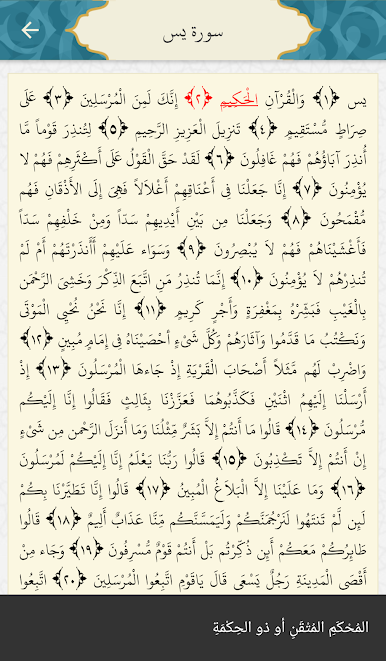 سورة يس
يس ﴿١﴾ وَالْقُرْآنِ الْحَكِيمِ ﴿٢﴾ إِنَّكَ لَمِنَ الْمُرْسَلِينَ ﴿٣﴾ عَلَى
صِرَاطٍ مُّسْتَقِيمٍ ﴿٤﴾ تَنزِيلَ الْعَزِيزِ الرَّحِيمِ ﴿٥﴾ لِتُنذِرَ قَوْماً مَّا
أُنذِرَ آبَاؤُهُمْ فَهُمْ غَافِلُونَ ﴿٦﴾ لَقَدْ حَقَّ الْقَوْلُ عَلَى أَكْثَرِهِمْ فَهُمْ لا
يُؤْمِنُونَ ﴿٧﴾ إِنَّا جَعَلْنَا فِي أَعْنَاقِهِمْ أَغْلاَلاً فَهِيَ إِلَى الأَذْقَانِ فَهُم
مُّقْمَحُونَ ﴿٨﴾ وَجَعَلْنَا مِن بَيْنِ أَيْدِيهِمْ سَدّاً وَمِنْ خَلْفِهِمْ سَدّاً
فَأَغْشَيْنَاهُمْ فَهُمْ لاَ يُبْصِرُونَ ﴿٩﴾ وَسَوَاء عَلَيْهِمْ أَأَنذَرْتَهُمْ أَمْ لَمْ
تُنذِرْهُمْ لاَ يُؤْمِنُونَ ﴿١٠﴾ إِنَّمَا تُنذِرُ مَنِ اتَّبَعَ الذِّكْرَ وَخَشِيَ الرَّحْمَن
بِالْغَيْبِ فَبَشِّرْهُ بِمَغْفِرَةٍ وَأَجْرٍ كَرِيمٍ ﴿١١﴾ إِنَّا نَحْنُ نُحْيِي الْمَوْتَى
وَنَكْتُبُ مَا قَدَّمُوا وَآثَارَهُمْ وَكُلَّ شَيْءٍ أحْصَيْنَاهُ فِي إِمَامٍ مُبِينٍ ﴿١٢﴾
وَاضْرِبْ لَهُم مَّثَلاً أَصْحَابَ الْقَرْيَةِ إِذْ جَاءهَا الْمُرْسَلُونَ ﴿١٣﴾ إِذْ
أَرْسَلْنَا إِلَيْهِمُ اثْنَيْنِ فَكَذَّبُوهُمَا فَعَزَّزْنَا بِثَالِثٍ فَقَالُوا إِنَّا إِلَيْكُم
مُّرْسَلُونَ ﴿١٤﴾ قَالُوا مَا أَنتُمْ إِلاَّ بَشَرٌ مِّثْلُنَا وَمَا أَنزَلَ الرَّحْمن مِن شَيْءٍ
إِنْ أَنتُمْ إِلاَّ تَكْذِبُونَ ﴿١٥﴾ قَالُوا رَبُّنَا يَعْلَمُ إِنَّا إِلَيْكُمْ لَمُرْسَلُونَ
﴿١٦﴾ وَمَا عَلَيْنَا إِلاَّ الْبَلاَغُ الْمُبِينُ ﴿١٧﴾ قَالُوا إِنَّا تَطَيَّرْنَا بِكُمْ
لَئِن لَّمْ تَنتَهُوا لَنَرْجُمَنَّكُمْ وَلَيَمَسَّنَّكُم مِّنَّا عَذَابٌ أَلِيمٌ ﴿١٨﴾ قَالُوا
طَائِرُكُمْ مَعَكُمْ أَئِن ذُكِّرْتُم بَلْ أَنتُمْ قَوْمٌ مُّسْرِفُونَ ﴿١٩﴾ وَجَاء مِنْ
أَقْصَى الْمَدِينَةِ رَجُلٌ يَسْعَى قَالَ يَاقَوْمِ اتَّبِعُوا الْمُرْسَلِينَ ﴿٢٠﴾ اتَّبِعُوا
المُحْكَمِ المُتْقَنِ أو ذو الحِكْمَةِ